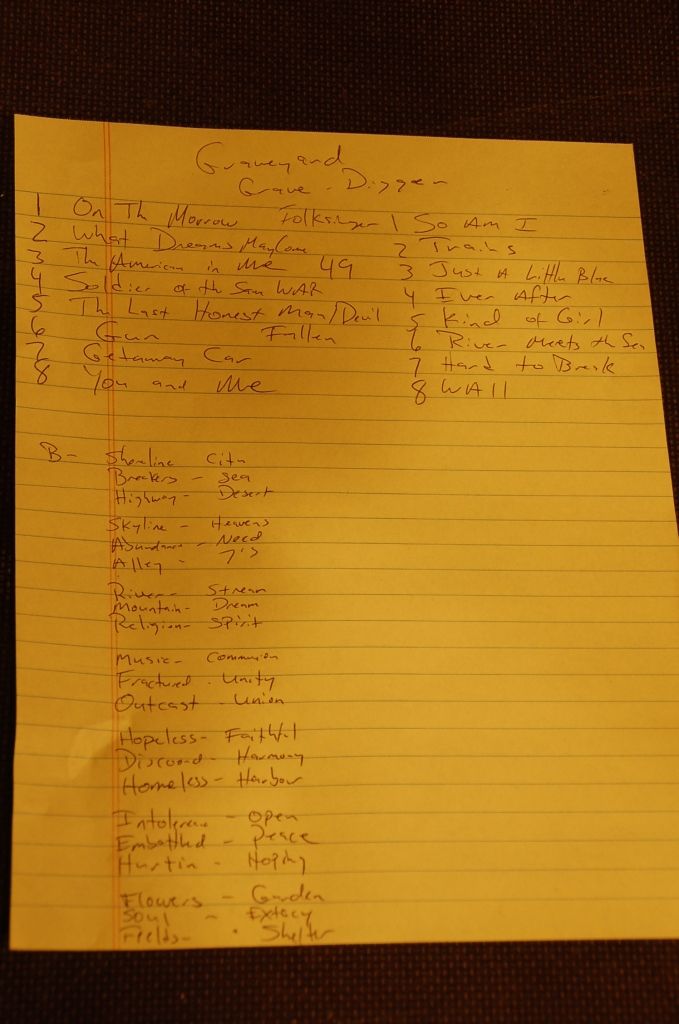 Graveyard
Grave - Digger
1 On Th Morrow Folksinger
2 What Dreams May Come
3 The American in Me 49
4 Soldier of the Sam WAR
5 The Last Honest Man/Devil
6 Gun Fallen
7 Getaway Car
8 You and Me
1 So Am I
2 Trains
3 Just A Little Blue
4 Ever After
5 Kind of Girl
6 River Meets th Sea
7 Hard to Break
8 WAll
B- Shoreline City
Breakers - Sea
Highway - Desert
Skyline - Heavens
Abundance - Need
Alley - 7's
River - Stream
Mountain - Dream
Religion - Spirit
Music - Communion
Fractured - Unity
Outcast - Union
Hopeless - Faithful
Discoord - Harmony
Homeless - Harbour
Intolerence - Open
Embattled - Peace
Hurtin - Hoping
Flowers - Garden
Soul - Extecy
Fields - Shelter